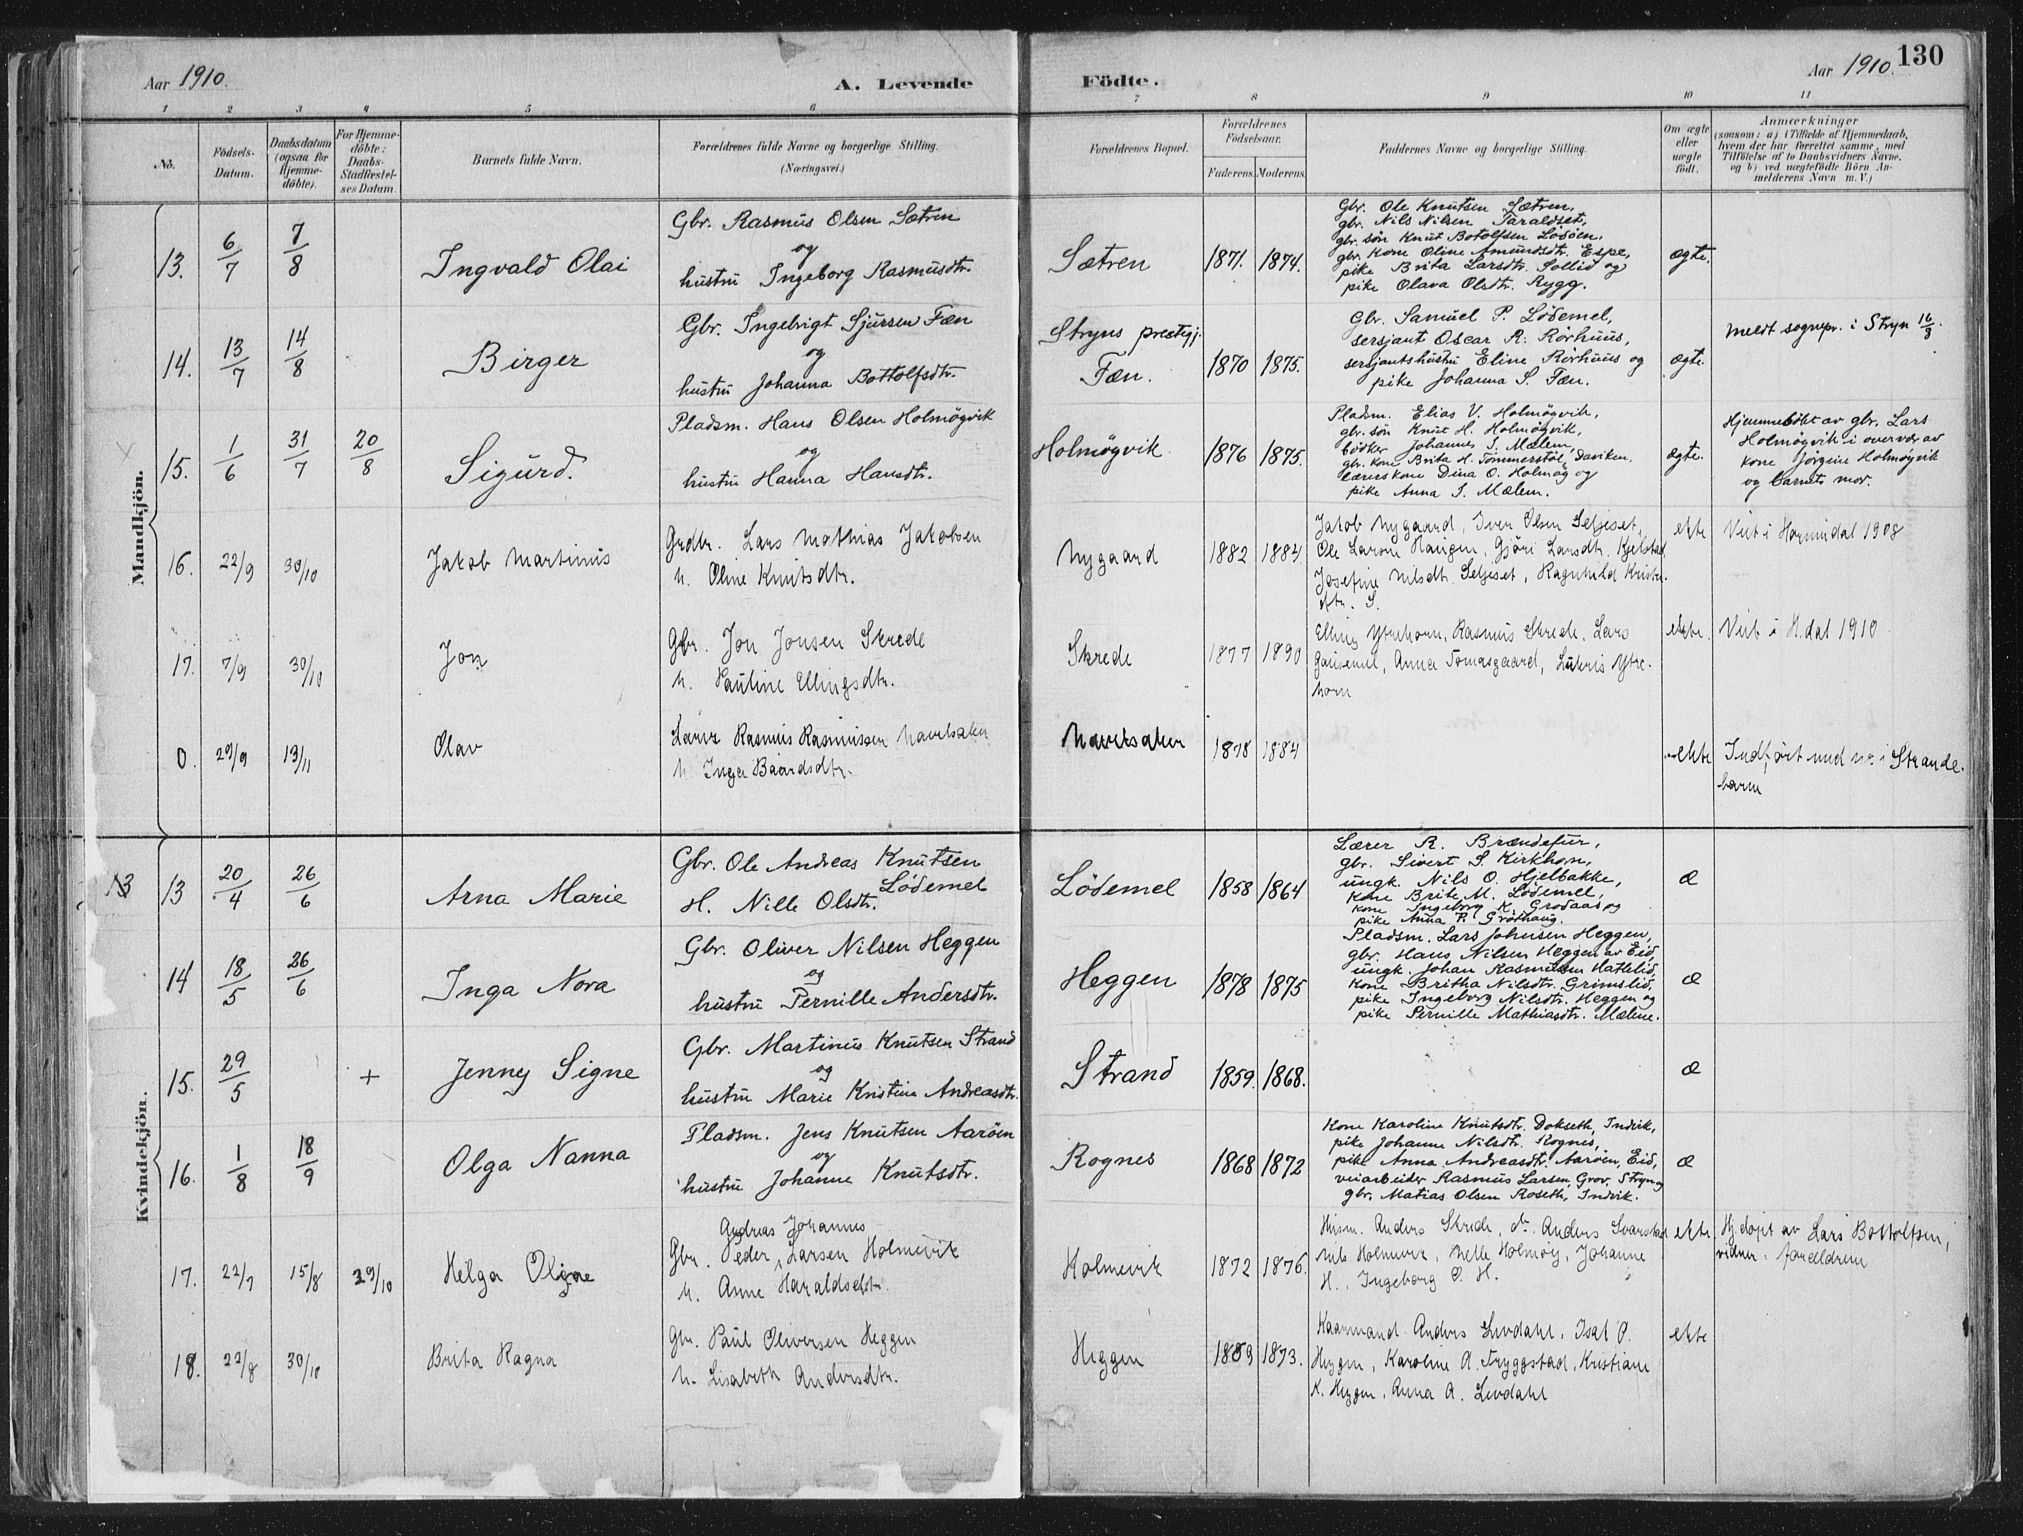 Aar 1910.
A. Levende
Födte.
Aar 1910.
130
1 2 3 4 5 6 7 8 9 10 11
No.
Födsels-Datum.
Daabsdatum (ogsaa for Hjemmedöbte).
For Hjemmedöbte: Daabs-Stadfæstelses Datum
Barnets fulde Navn.
Forældrenes fulde Navne og borgerlige Stilling. (Næringsvei.)
Forældrenes Bopæl.
Forældrenes Födselsaar.
Faderens. Moderens.
Faddernes Navne og borgerlige Stilling.
Om ægte eller uægte födt.
Anmærkninger
(saasom: a) i Tilfælde af Hjemmedaab,
hvem der har forrettet samme, med
Tilföielse af to Daabsvidners Navne,
og b) ved uægtefödte Börn An-
melderens Navn m. V.)
Mandkjön.
13. 6/7 7/8 Ingvald Olai
Gbr. Rasmus Olsen Sætren
og
hustru Ingeborg Rasmusdtr.
Sætren 1871. 1874.
Gbr. Ole Knutsen Sætren,
gbr. Nils Nilsen Taraldset,
gbr. søn Knut Botolfsen Løsöen,
gbr. kone Oline Amundsdtr. Espe,
pike Brita Larsdtr. Sollid og
pike Olava Olsdtr. Rygg.
ægte.
14. 13/7 14/8 Birger
Gbr. Ingebrigt Sjursen Fæn
og
hustru Johanna Bottolfsdtr.
Stryns prestegj.
Fæn. 1870 1875.
Gbr. Samuel P. Lödemel,
sersjant Oscar R. Rörhuus,
sersjantshustru Eline Rörhuus og
pike Johanna S. Fæn.
ægte.
Meldt sognepr. i Stryn 16/8.
15. 1/6 31/7 20/8 Sigurd.
Pladsm. Hans Olsen Holmögvik
og
hustru Hanna Hansdtr.
Holmögvik 1876 1875.
Pladsm. Elias V. Holmögvik,
gbr. søn Knut H. Holmögvik,
bödker Johannes I. Mælem,
gbr. kone Brita H. Tömmerstöl, Daviken,
læreskone Dina O. Holmög og
pike Anna I. Mælem.
ægte.
Hjemmedöbt av gbr. Lars
Holmögvik i overvær av
kone Jörgine Holmögvik
og barnets mor.
16. 22/9 30/10 Jakob Martinus
Grdbr. Lars Mathias Jakobsen
h. Oline Knutsdtr.
Nygaard 1882 1884
Jakob Nygaard, Iver Olsen Seljeset,
Ole Larsen Haugen, Gjöri Larsdtr. Kjelstad
Josefine Nilsdtr. Seljeset, Ragnhild Krist-
dtr. S.
ekte
Viet i Hornindal 1908
17. 7/9 30/10 Jon
Gbr. Jon Jonsen Skrede
h. Pauline Ellingsdtr.
Skrede 1877 1890
Elling Ytrehorn, Rasmus Skrede, Lars
Gausemel, Anna Tomasgaard, Lukris Ytre-
horn
ekte.
Viet i H.dal 1910
0. 29/9 13/11 Olav
Lærer Rasmus Rasmussen Navelsaker
h. Inga Baardsdtr.
Navelsaker 1878 1884
ekte
Indfört med nr. i Strande-
barm
Kvindekjön.
13 13 20/4 26/6 Arna Marie
Gbr. Ole Andreas Knutsen
Lödemel
H. Nille Olsdtr.
Lödemel 1858 1864
Lærer R. Brændefur,
gbr. Sivert S. Kirkhorn,
ungk. Nils O. Hjelbakke,
kone Brite M. Lödemel,
kone Ingeborg K. Grodaas og
pike Anna P. Gröthaug.
æ
14 18/5 26/6 Inga Nora
Gbr. Oliver Nilsen Heggen
og
hustru Pernille Andersdtr.
Heggen 1878 1875
Pladsm. Lars Johnsen Heggen,
gbr. Hans Nilsen Heggen av Eid,
ungk. Johan Rasmusen Hattelid,
kone Britha Nilsdtr. Grimslid,
pike Ingeborg Nilsdtr. Heggen og
pike Pernille Mathiasdtr. Mælme.
æ
15. 29/5 + Jenny Signe
Gbr. Martinus Knutsen Strand
og
hustru Marie Kristine Andreasdtr.
Strand 1859. 1868.
æ
16. 1/8 18/9 Olga Nanna
Pladsm. Jens Knutsen Aaröen
og
hustru Johanne Knutsdtr.
Rognes 1868 1872
Kone Karoline Knutsdtr. Dokseth, Indvik,
pike Johanne Nilsdtr. Rognes,
pike Anna Andreasdtr. Aaröen, Eid,
veiarbeider Rasmus Larsen, Grov, Stryn og
gbr. Matias Olsen Roseth, Indvik.
æ
17. 22/7 15/8 29/10 Helga Oline
Andreas Johannes
Gbr. Peder Larsen Holmevik
h. Anne Haraldsdtr.
Holmevik 1872 1876.
Husm. Anders Skrede, do. Anders Svarstad
Nils Holmevik, Nelle Holmöy, Johanne
H., Ingeborg O. H.
ekte
Hj.döpt av Lars Bottolfsen,
vidner: forældrene
18. 22/8 30/10 Brita Ragna
Gbr. Paul Oliversen Heggen
h. Lisabeth Andersdtr.
Heggen 1869 1873.
Kaarmand Anders Levdahl, Isak P.
Heggen, Karoline A. Tryggstad, Kristiane
K. Heggen, Anna A. Levdahl
ekte